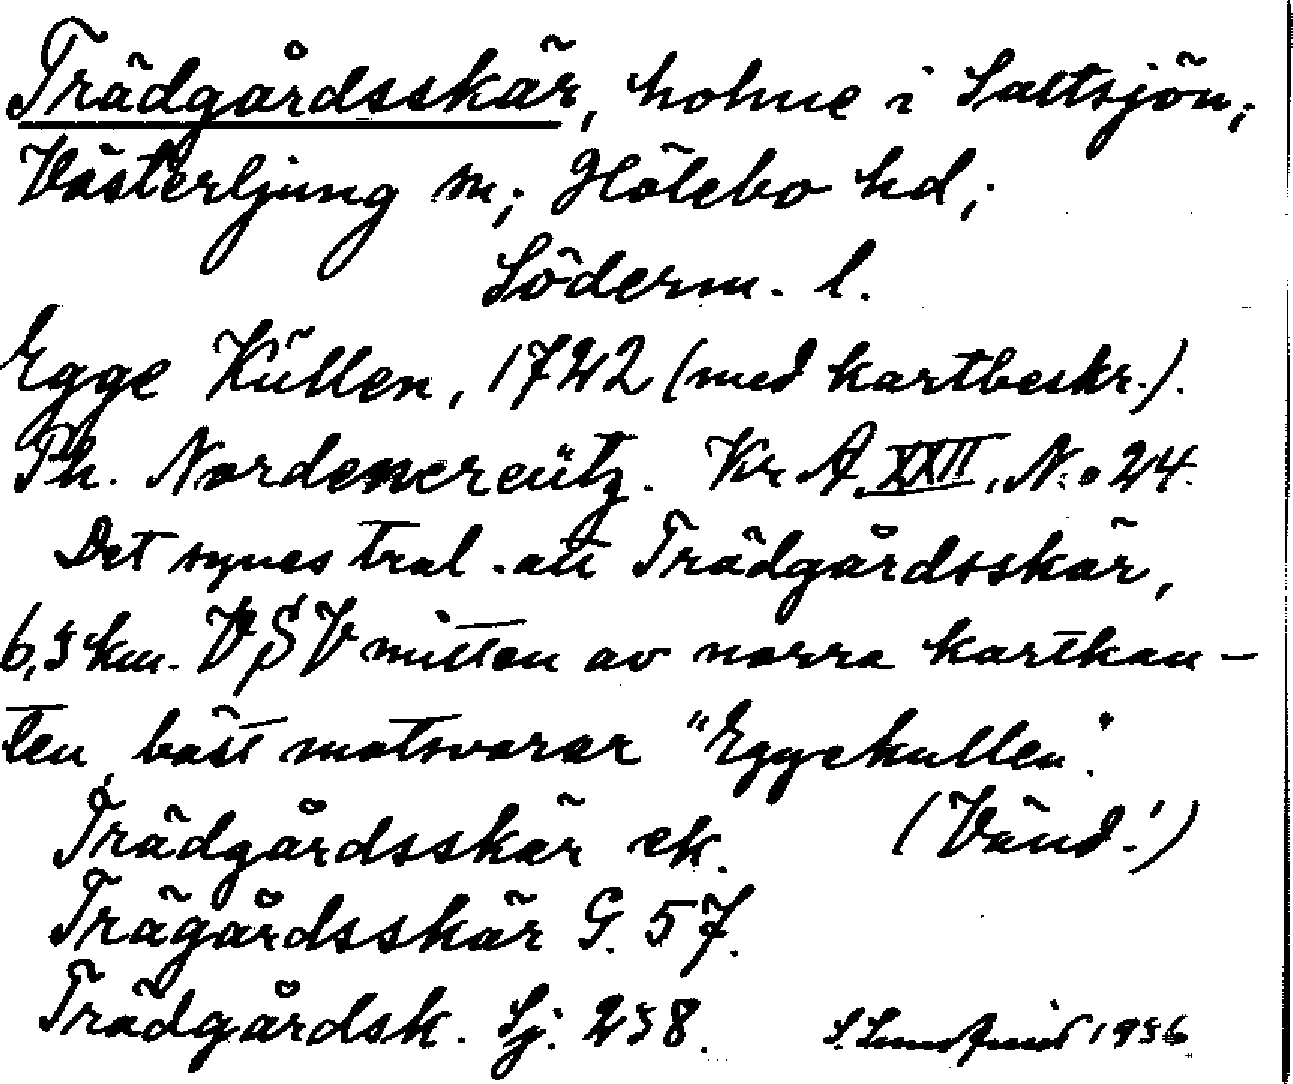 Trädgårdsskär, holme i Saltsjön;
Västerljung sn; Hölebo hd;
Söderm. l.
Egge Küllen, 1742 (med kartbeskr.).
Th. Nordencreütz. Kr. A. XXII. No 24.
Det synes trol. att Trädgårdsskär,
6,3 km. VSV mitten av norra kartkan-
ten bäst motsvarar "Eggekullen".
(Vänd!)
Trädgårdsskär ek.
Trägårdsskär G. 57.
Trädgårdsk. Sj. 238.
1936